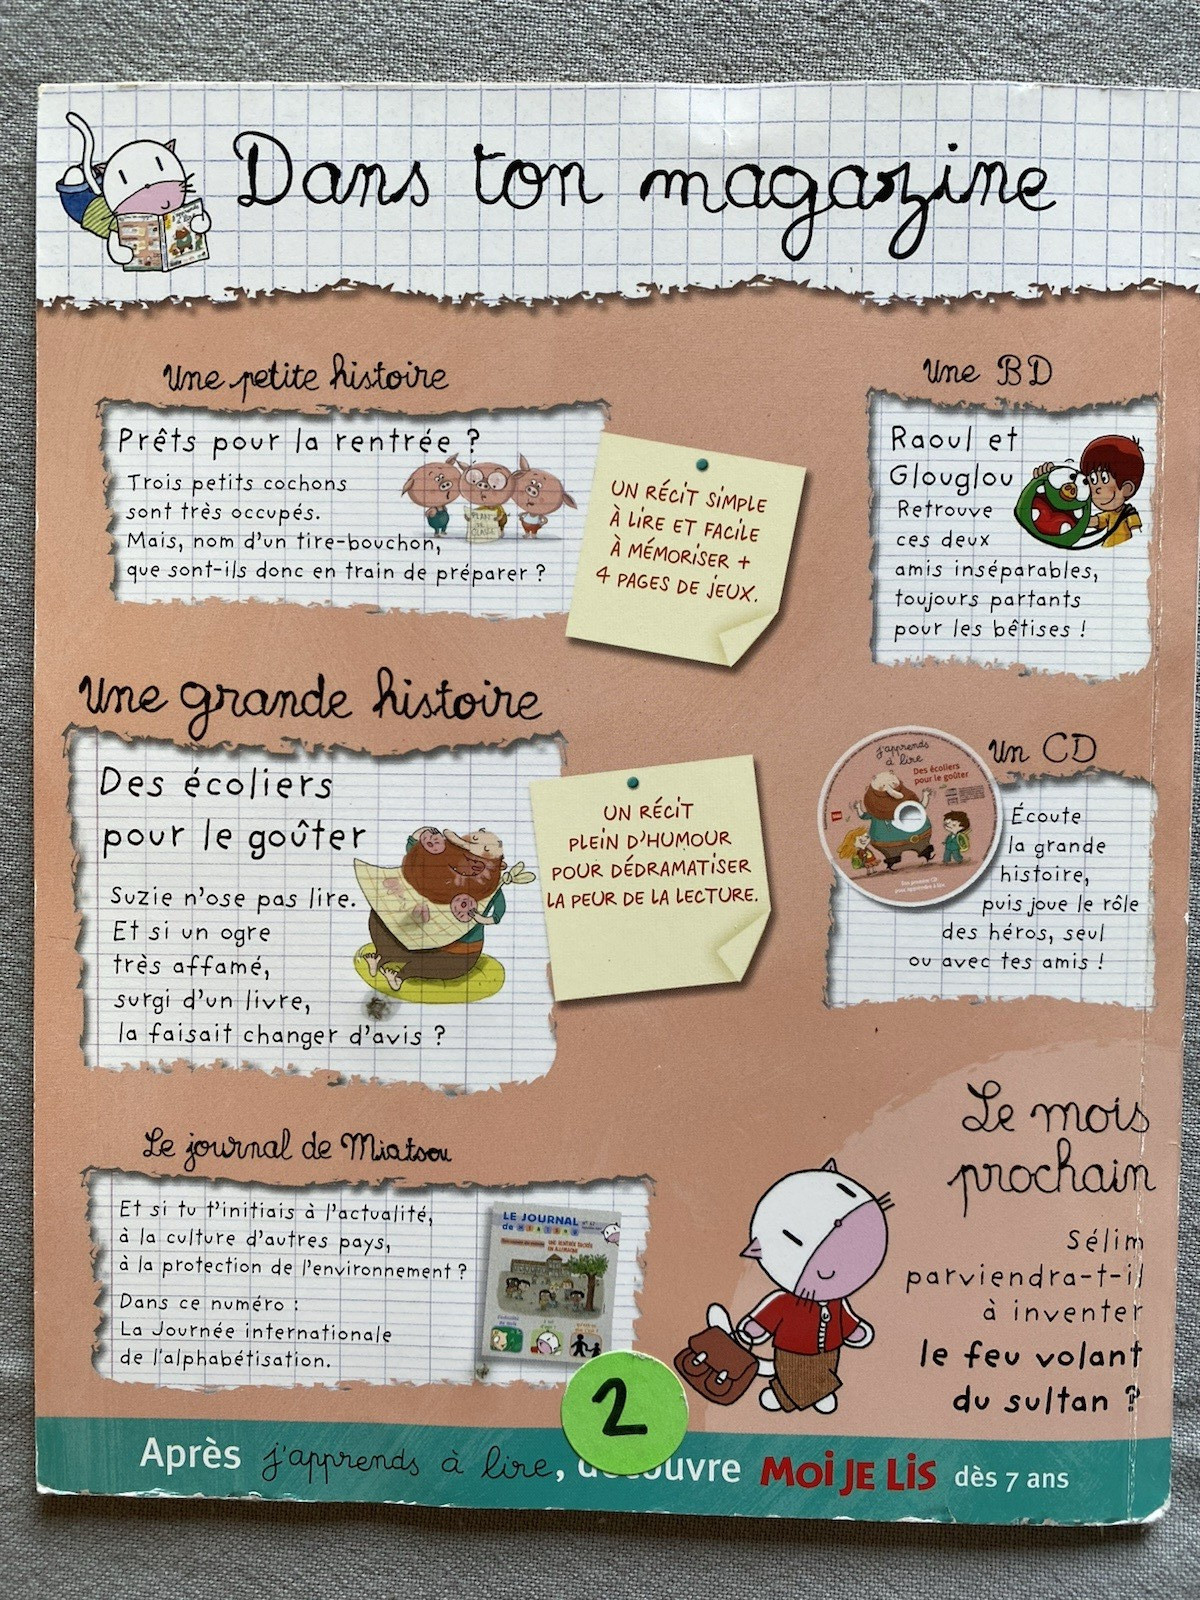 Dans ton magazine
Une petite histoire
Prêts pour la rentrée ?
Trois petits cochons
sont très occupés.
Mais, nom d'un tire-bouchon,
que sont-ils donc en train de préparer ?
UN RÉCIT SIMPLE
À LIRE ET FACILE
À MÉMORISER +
4 PAGES DE JEUX.
Une BD
Raoul et
Glouglou
Retrouve
ces deux
amis inséparables,
toujours partants
pour les bêtises !
Une grande histoire
Des écoliers
pour le goûter
Suzie n'ose pas lire.
Et si un ogre
très affamé,
surgi d'un livre,
la faisait changer d'avis ?
UN RÉCIT
PLEIN D'HUMOUR
POUR DÉDRAMATISER
LA PEUR DE LA LECTURE.
Un CD
j'apprends
à lire
Des écoliers
pour le goûter
Écoute
la grande
histoire,
puis joue le rôle
des héros, seul
ou avec tes amis !
Le journal de Miatsou
Et si tu t'initiais à l'actualité,
à la culture d'autres pays,
à la protection de l'environnement ?
Dans ce numéro :
La Journée internationale
de l'alphabétisation.
LE JOURNAL
Le mois
prochain
Sélim
parviendra-t-il
à inventer
le feu volant
du sultan ?
2
Après j'apprends à lire, découvre MOI JE LIS dès 7 ans